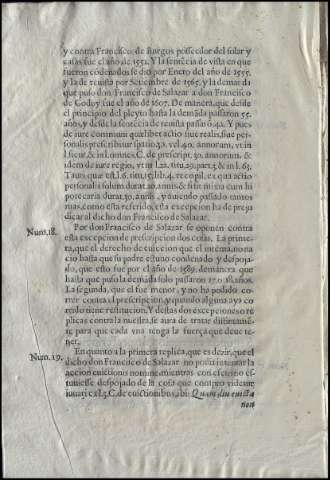 y contra Francisco de Burgos posseedor del solar y
casas fue el año de 1551. Y la sentēcia de vista en que
fueron cōdenados se dio por Enero del año de 1555.
y la de reuista por Setiembre de 1565. y la demāda
que puso don Francisco de Salazar a don Francisco
de Godoy fue el año de 1607. De manera, que desde
el principio del pleyto hasta la demāda passaron 55.
años, y desde la sentēcia de reuista passarō 42. Y pues
de iure communi quælibet actio siue realis, siue per-
sonalis prescribitur spatio 30. vel 40. annorum, vt in
l. sicut & in l. omnes, C. de præscript. 30. annorum. &
idem de iure regio, vt in l. 22. titu. 29. part. 3. & in l. 63.
Taur. quæ est l. 6. titu. 15. lib. 4. recopil. ex qua actio
personalis solum durat 20. annis & si sit mixta cum hi
potecaria durat 30. annis, y auiendo passado tantos
mas, como està referido, esta excepcion ha de preju
dicar al dicho don Francisco de Salazar.
Num. 18. Por don Francisco de Salazar se oponen contra
esta excepcion de prescripcion dos cosas. La prime-
ra, que el derecho de euiccion que el intenta, no na
cio hasta que su padre estuuo condenado y despoja-
do, que esto fue por el año de 1589. demanera que
hasta que puso la demāda solo passaron 17. o 18. años.
La segunda, que el fue menor, y no ha podido co-
rrer contra el prescripcion, y quando alguna aya co
rrido tiene restitucion. Y destas dos excepciones o re
plicas contra la nuestra, se aura de tratar distinctamē
te, para que cada vna tenga la fuerça que deue te-
ner.
Num. 19. En quanto a la primera replica, que es dezir, que el
dicho don Francisco de Salazar no podia intentar la
accion euictionis nomine, mientras con efecto no es-
tuuiesse despojado de la cosa que compro videtur
iuuari ex l. 3. C. de euictionibus, ibi: Quam diu euicta
non